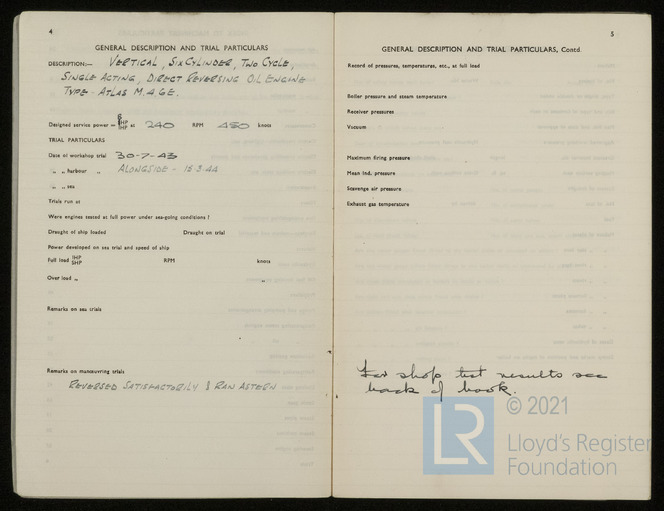 4
GENERAL DESCRIPTION AND TRIAL PARTICULARS
DESCRIPTION:— VERTICAL, SIX CYLINDER, TWO CYCLE,
SINGLE ACTING, DIRECT REVERSING OIL ENGINE
TYPE - ATLAS M.4GE.
Designed service power = BHP SHP at 240 RPM 450 knots
TRIAL PARTICULARS
Date of workshop trial 30-7-43
„ „ harbour „ ALONGSIDE - 15 3.44
„ „ sea
Trials run at
Were engines tested at full power under sea-going conditions?
Draught of ship loaded Draught on trial
Power developed on sea trial and speed of ship
Full load IHP SHP RPM knots
Over load „ „
Remarks on sea trials
Remarks on manœuvring trials
REVERSED SATISFACTORILY & RAN ASTERN
5
GENERAL DESCRIPTION AND TRIAL PARTICULARS, Contd.
Record of pressures, temperatures, etc., at full load
Boiler pressure and steam temperature
Receiver pressures
Vacuum
Maximum firing pressure
Mean ind. pressure
Scavenge air pressure
Exhaust gas temperature
For shop test results see
back of book.
LR
© 2021
Lloyd's Register
Foundation